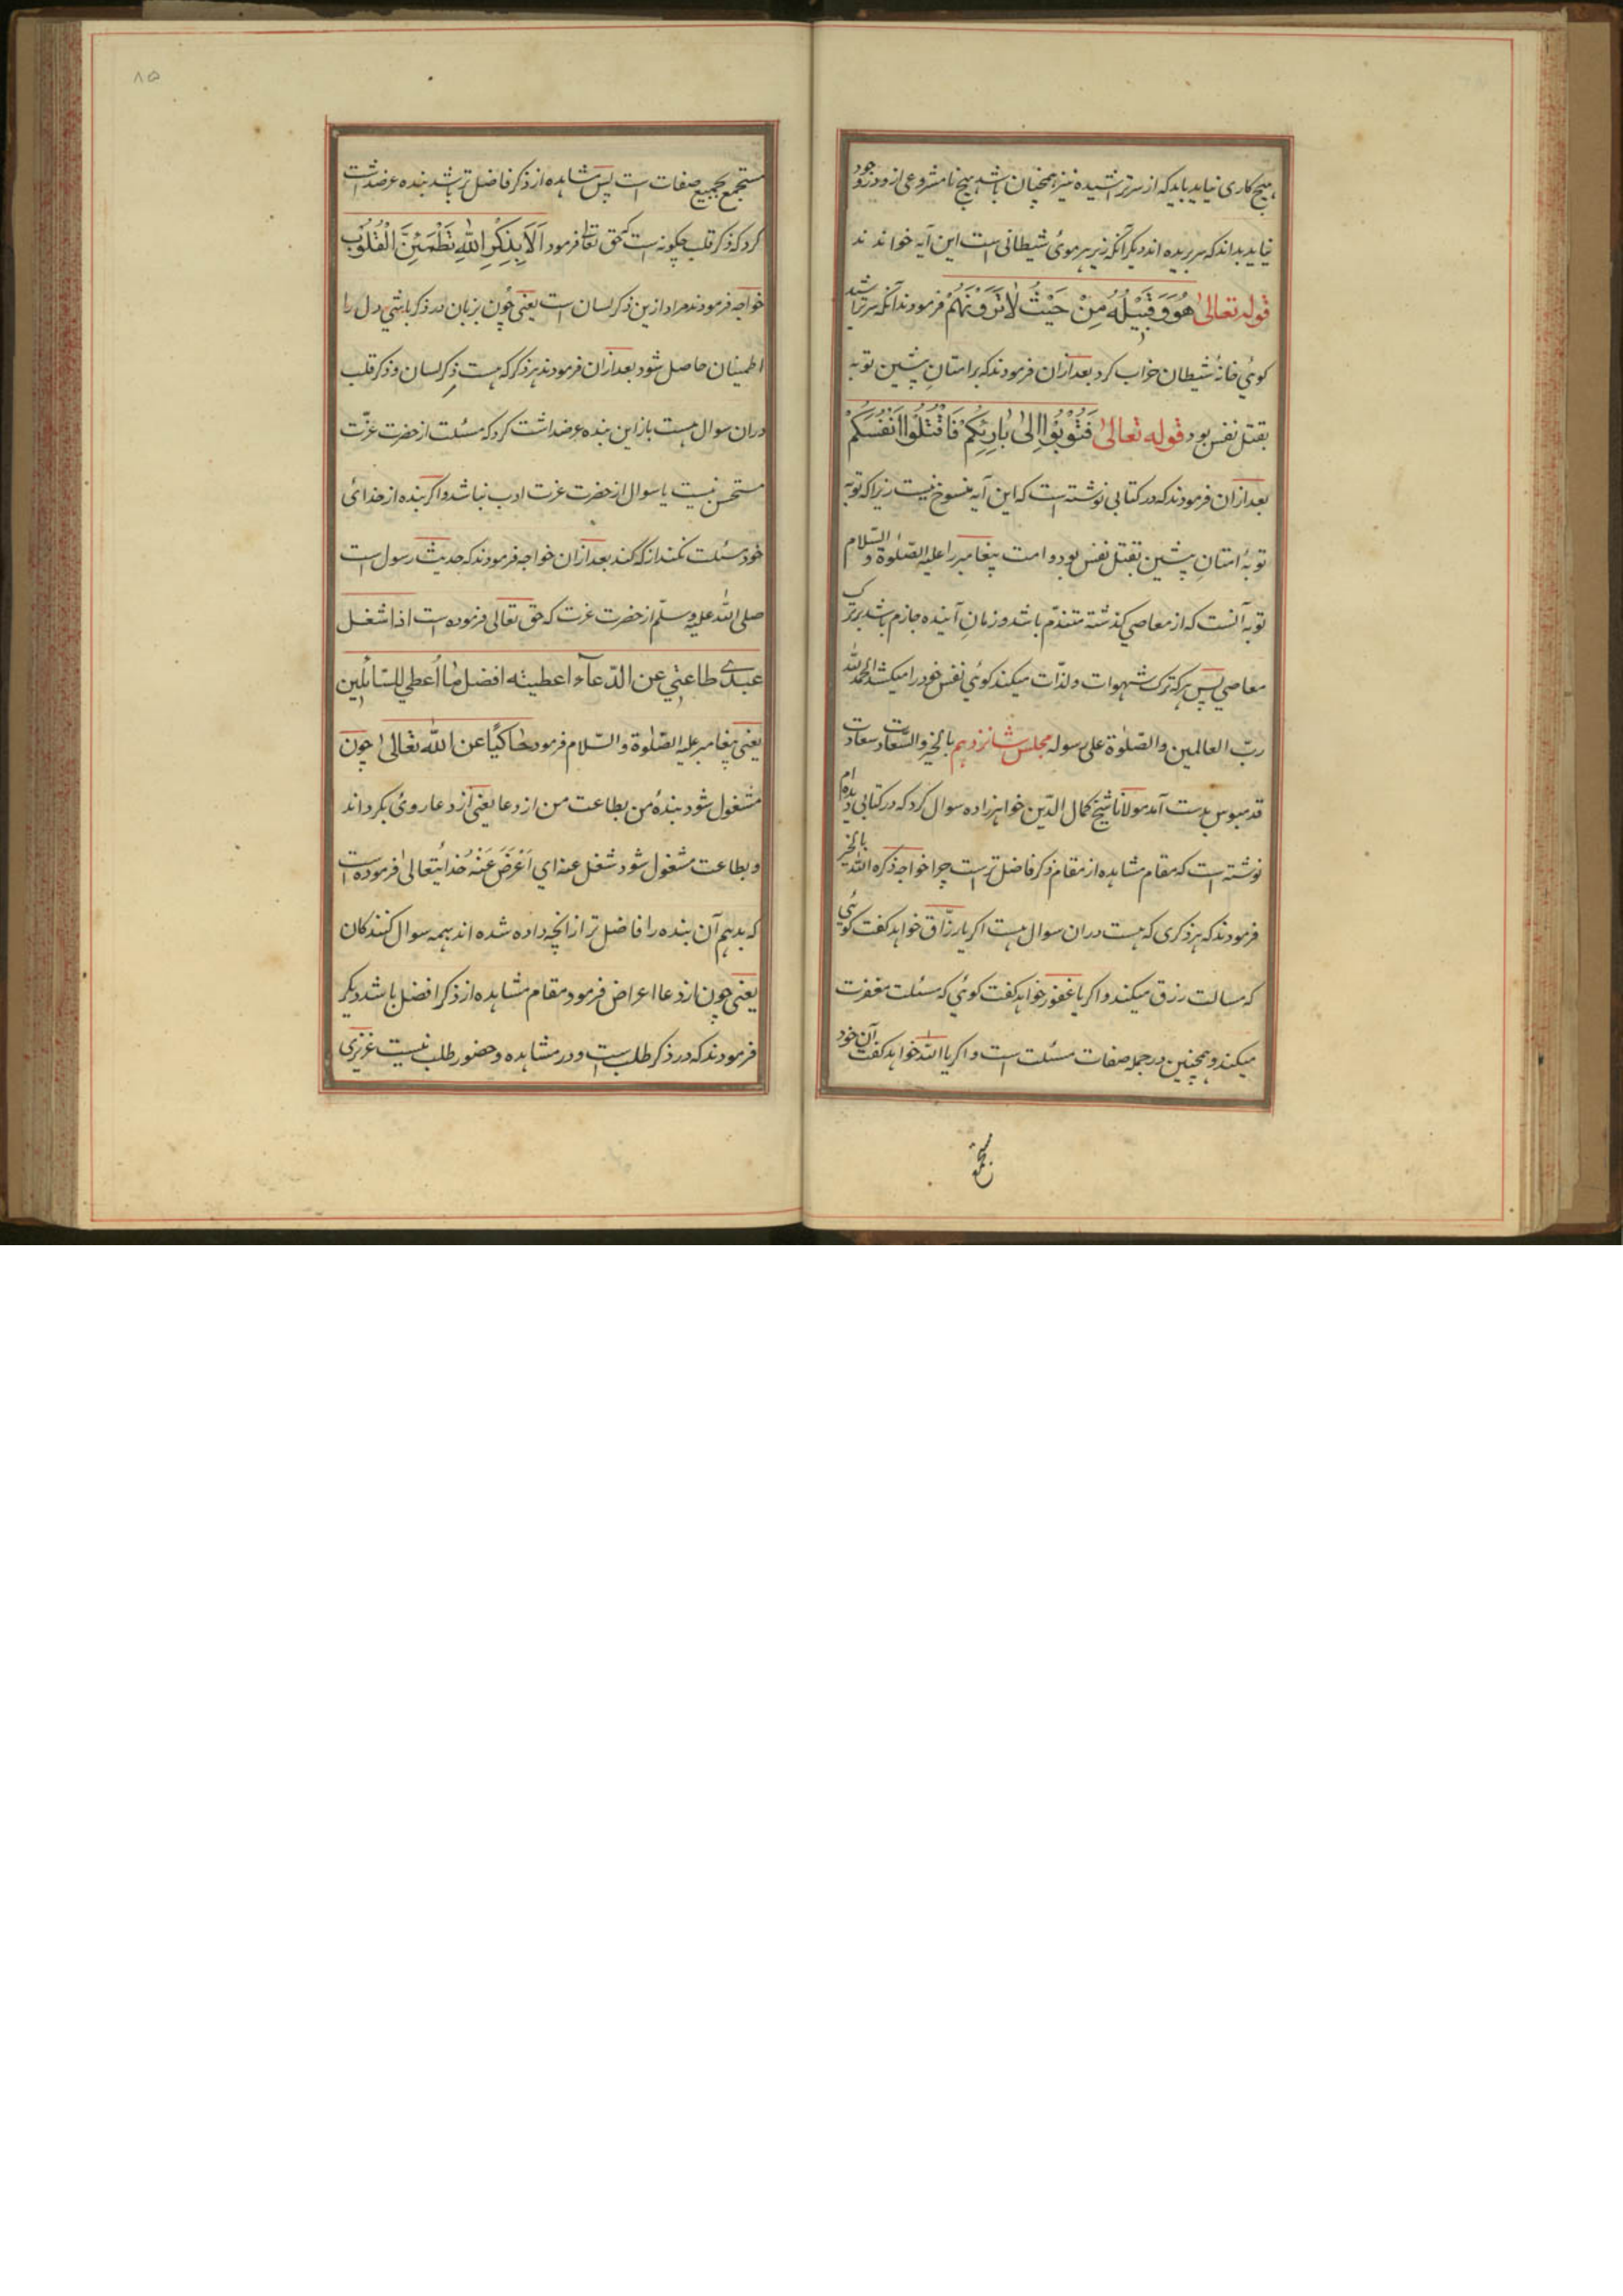 هیچ کاری نیاید باید که از سر تراشیده نیز همچنان باشد هیچ نامشروعی ازو در وجود
نیاید بداند که سر بریده اند دیگر آنکه زیر هر موئی شیطانی است این آیه خواندند
قوله تعالیٰ هُوَ وَقَبِیْلُهُ مِنْ حَیْثُ لَا تَرَوْنَهُمْ فرمودند آنکه سر تراشید
کوئی خانهٔ شیطان خراب کرد بعد ازان فرمودند که بر امتانِ پیشین توبه
بقتل نفس بود قوله تعالیٰ فَتُوْبُوْا اِلیٰ بَارِئِکُمْ فَاقْتُلُوْا اَنْفُسَکُمْ
بعد ازان فرمودند که در کتابی نوشته است که این آیه منسوخ نیست زیرا که توبه
توبهٔ امتانِ پیشین بقتل نفس بود و امت پیغامبر را علیه الصّلوة و السّلام
توبه آنست که از معاصی کذشته متندّم باشد و زمانِ آینده جازم باشد بر ترک
معاصی پس هر که ترک شهوات و لذّات میکند کوئی نفس خود را میکشد الحمد لله
ربّ العالمین والصّلوٰة علی رسوله مجلس شانزدهم بالخیر والسّعادت سعادت
قدمبوس بدست آمد مولانا شیخ کمال الدّین خواهرزاده سوال کرد که در کتابی دیده ام
نوشته است که مقام مشاهده از مقام ذکر فاضل تر است چرا خواجه ذکره الله بالخیر
فرمودند که هر ذکری که هست دران سوال هست اکر یا رزّاق خواهد کفت کوئی
که مسالت رزق میکند و اکر یا غفور خواهد کفت کوئی که مسئلت مغفرت
میکند و همچنین در جمله صفات مسئلت است و اکر یا الله خواهد کفت آن خود
۸۵
مستجمع بجمیع صفات است پس مشاهده از ذکر فاضل تر باشد بنده عرضداشت
کرد که ذکر قلب چکونه است که حق تعالی فرمود اَلَا بِذِکْرِ اللهِ تَطْمَئِنَّ الْقُلُوْبُ
خواجه فرمودند مراد ازین ذکر لسان است یعنی چون بزبان در ذکر باشی دل را
اطمینان حاصل شود بعد ازان فرمودند هر ذکر که هست ذکر لسان و ذکر قلب
دران سوال هست باز این بنده عرضداشت کرد که مسئلت از حضرت عزّت
مستحسن نیست یا سوال از حضرت عزت ادب نباشد و اکر بنده از خدائ
خود مسئلت نکند از که کند بعد ازان خواجه فرمودند که حدیث رسول است
صلی الله علیه وسلّم از حضرت عزت که حق تعالی فرموده است اذا شغل
عبدی طاعتی عن الدّعآء اعطیته افضل ما اُعطی للسّائلین
یعنی پیغامبر علیه الصّلوٰة والسّلام فرمود حاکیًا عن الله تعالیٰ چون
مشغول شود بندهٔ من بطاعت من از دعا یعنی از دعا روئ بکرداند
و بطاعت مشغول شود شغل عنه ای اَعْرَضَ عَنْهُ خدایتعالیٰ فرموده است
که بدهم آن بنده را فاضل تر از انچه داده شده اند همه سوال کنندکان
یعنی چون از دعا اعراض فرمود مقام مشاهده از ذکر افضل باشد دیکر
فرمودند که در ذکر طلب است و در مشاهده و حضور طلب نیست عزیزی